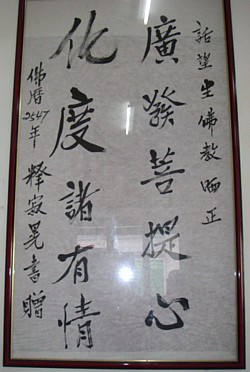 望生佛教晒正
廣發菩提心
化度諸有情
佛曆2547年 釋寂晃書贈